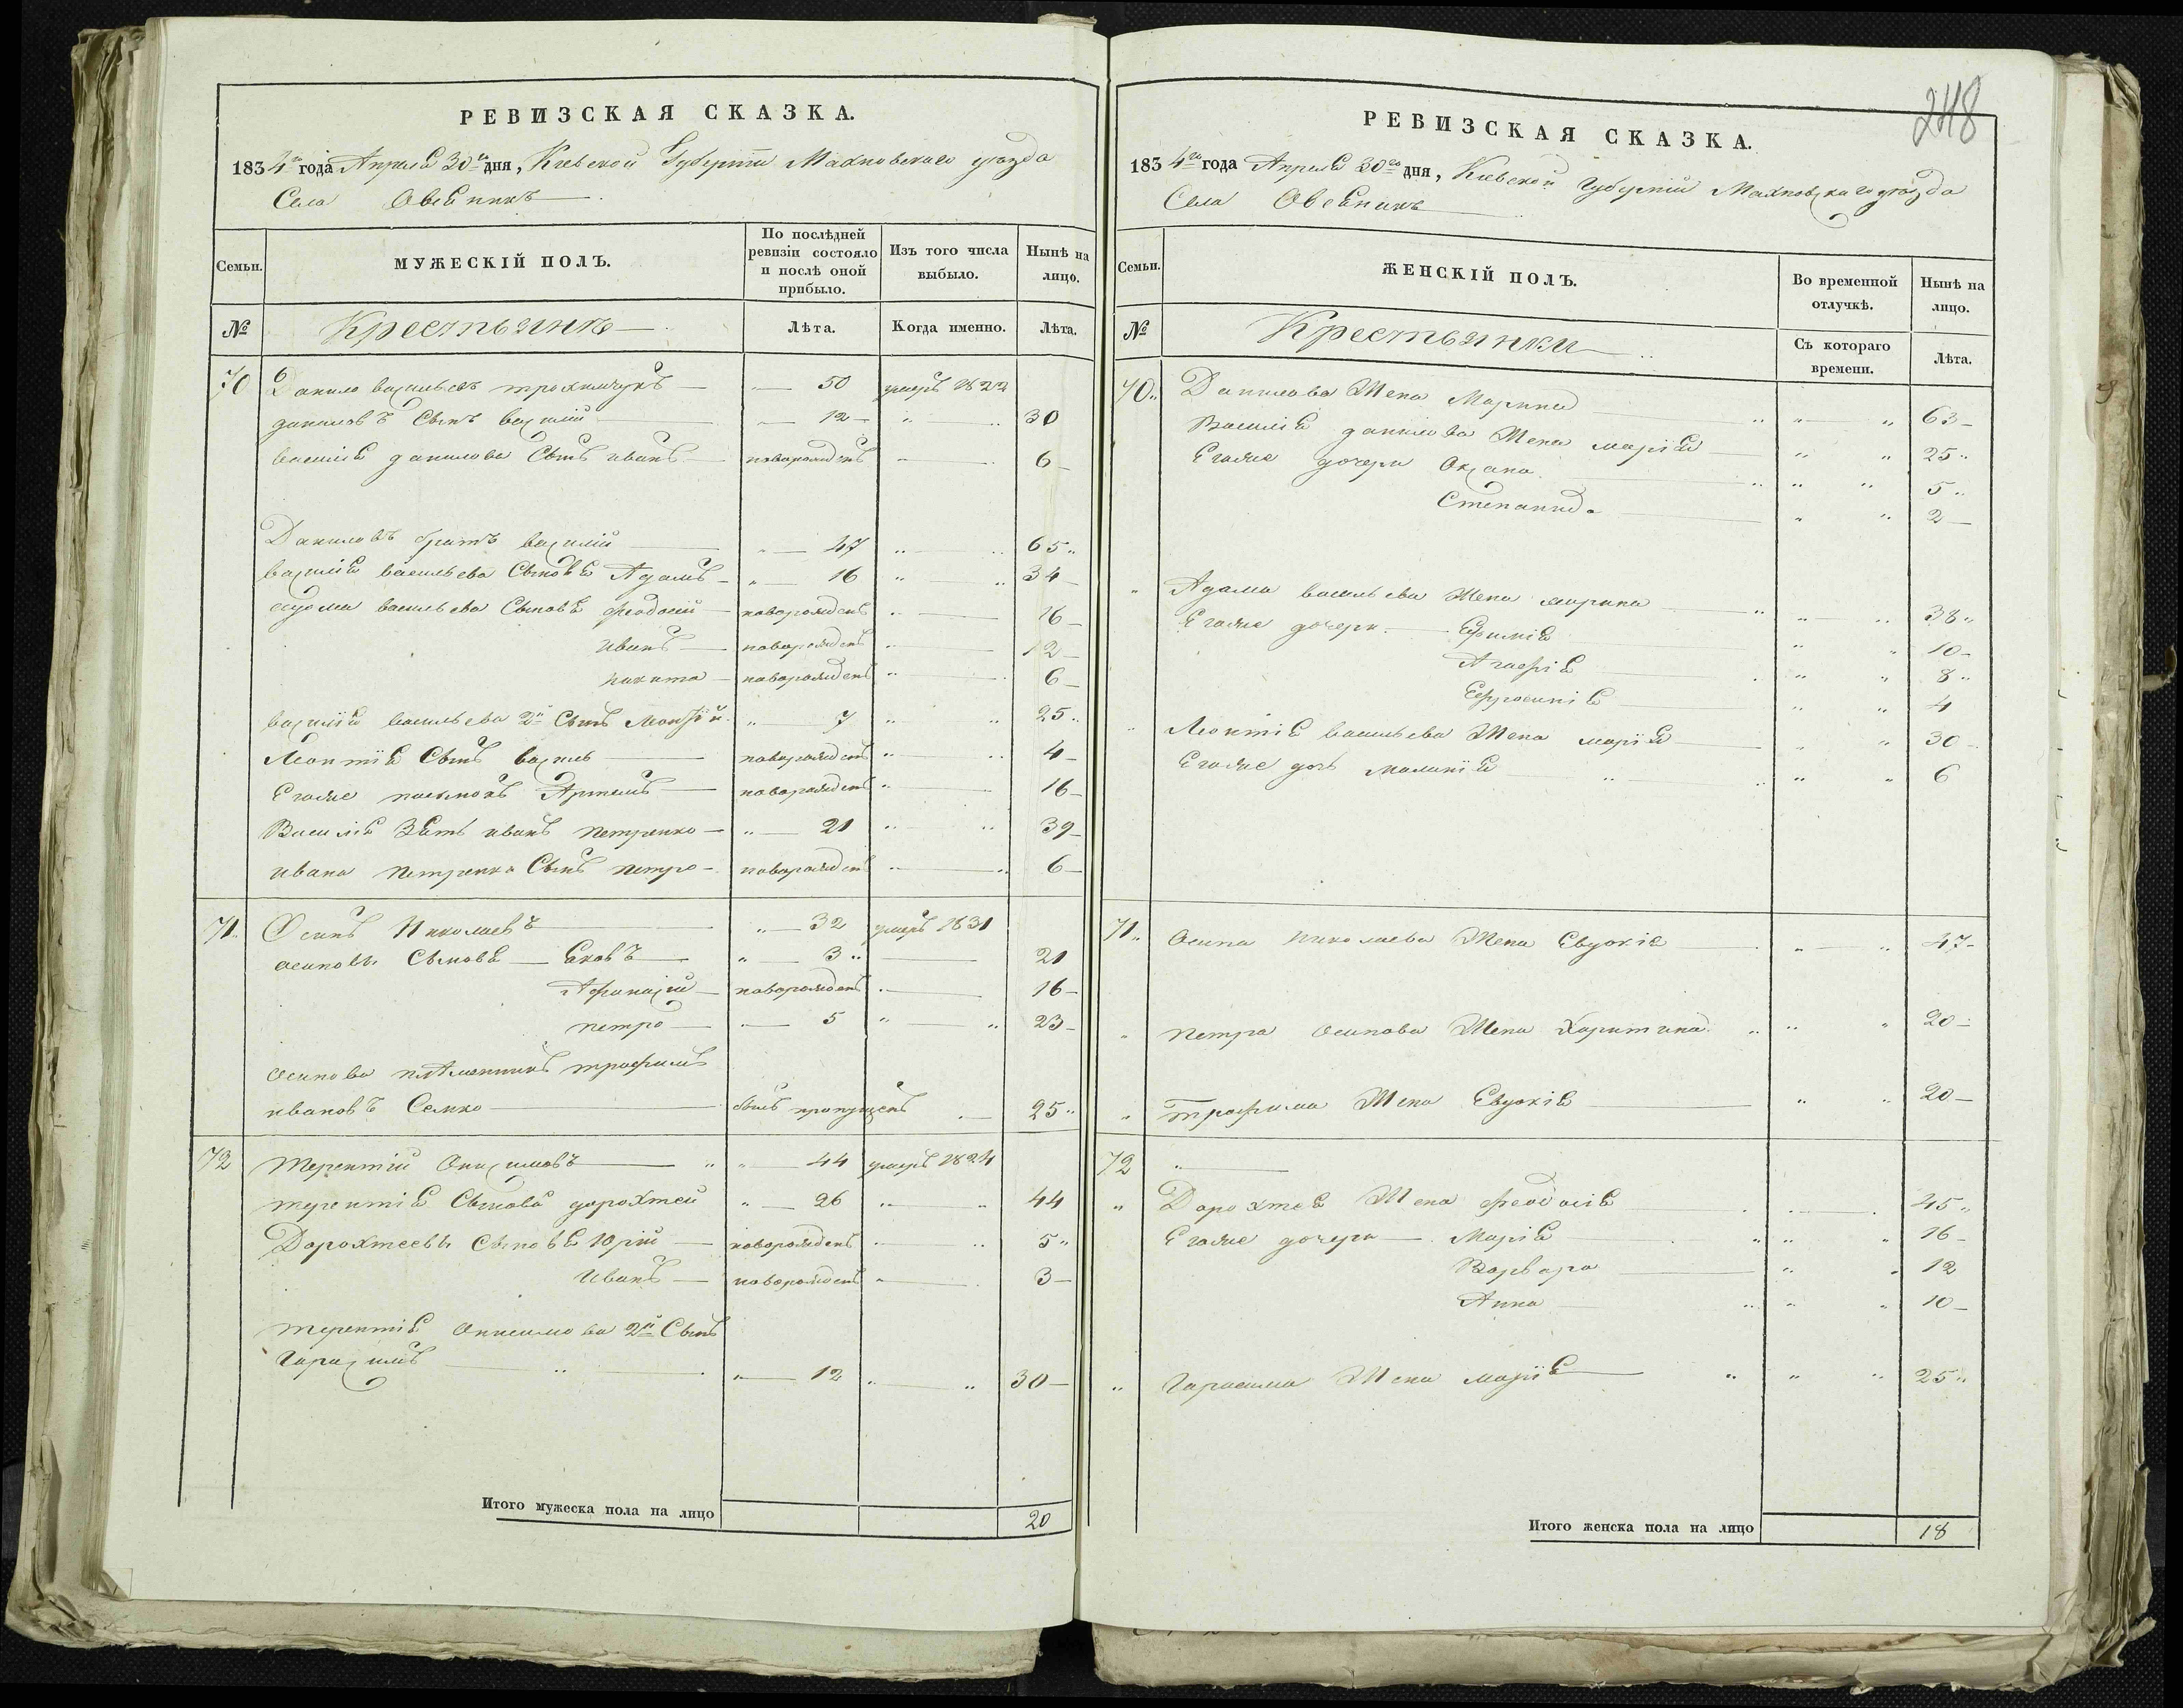 РЕВИЗСКАЯ СКАЗКА.
1834го года Апреля 30го дня, Киевской Губернии Махновского уезда
Села Овсяникъ
Семьи.
МУЖЕСКІЙ ПОЛЪ.
По послѣдней ревизіи состояло и послѣ оной прибыло.
Изъ того числа выбыло.
Нынѣ на лицо.
№
Крестьяне
Лѣта.
Когда именно.
Лѣта.
70 Данило васильевъ трохимчукъ 50 умеръ 1822
даниловъ Сынъ василий 12 30
василія данилова Сынъ иванъ новорожденъ 6
Даниловъ братъ василий 47 65
василія васильева Сыновья Адамъ 16 34
адама васильева Сыновья феодосий новорожденъ 16
иванъ новорожденъ 12
никита новорожденъ 6
василія васильева 2й Сынъ Леонтій 7 25
Леонтія Сынъ василь новорожденъ 4
Егоже пасынокъ Артемъ новорожденъ 16
Василія Зять иванъ петренко 21 39
ивана петренка Сынъ петро новорожденъ 6
71 Осипъ Николаевъ 32 умеръ 1831
осиповы Сыновья Яковъ 3 21
Афанасий новорожденъ 16
петро 5 23
осипова племянникъ трофимъ
ивановъ Семко былъ пропущенъ 25
72 терентий Онисимовъ 44 умеръ 1824
терентія Сыновья дорохтей 26 44
Дорохтеевы Сыновья юрій новорожденъ 5
иванъ новорожденъ 3
терентія онисимова 2й Сынъ
Гарасимъ 12 30
Итого мужеска пола на лицо 20
248
РЕВИЗСКАЯ СКАЗКА.
1834го года Апреля 30го дня, Киевской Губернии Махновского уезда
Села Овсяникъ
Семьи.
ЖЕНСКІЙ ПОЛЪ.
Во временной отлучкѣ.
Нынѣ на лицо.
№
Крестьянки
Съ котораго времени.
Лѣта.
70 Данилова Жена Марина 63
Василія данилова Жена марія 25
Егоже дочери Оксана 5
Степанида 2
Адама васильева Жена марина 38
Егоже дочери Ефимія 10
Агафія 8
Ефросинія 4
Леонтія васильева Жена марія 30
Егоже дочь маланія 6
71 Осипа николаева Жена Евдокія 47
петра осипова Жена Харитина 20
трофима Жена Евдокія 20
72
Дорохтея Жена феодосія 45
Егоже дочери Марія 16
Варвара 12
Анна 10
Гарасима Жена марія 25
Итого женска пола на лицо 18